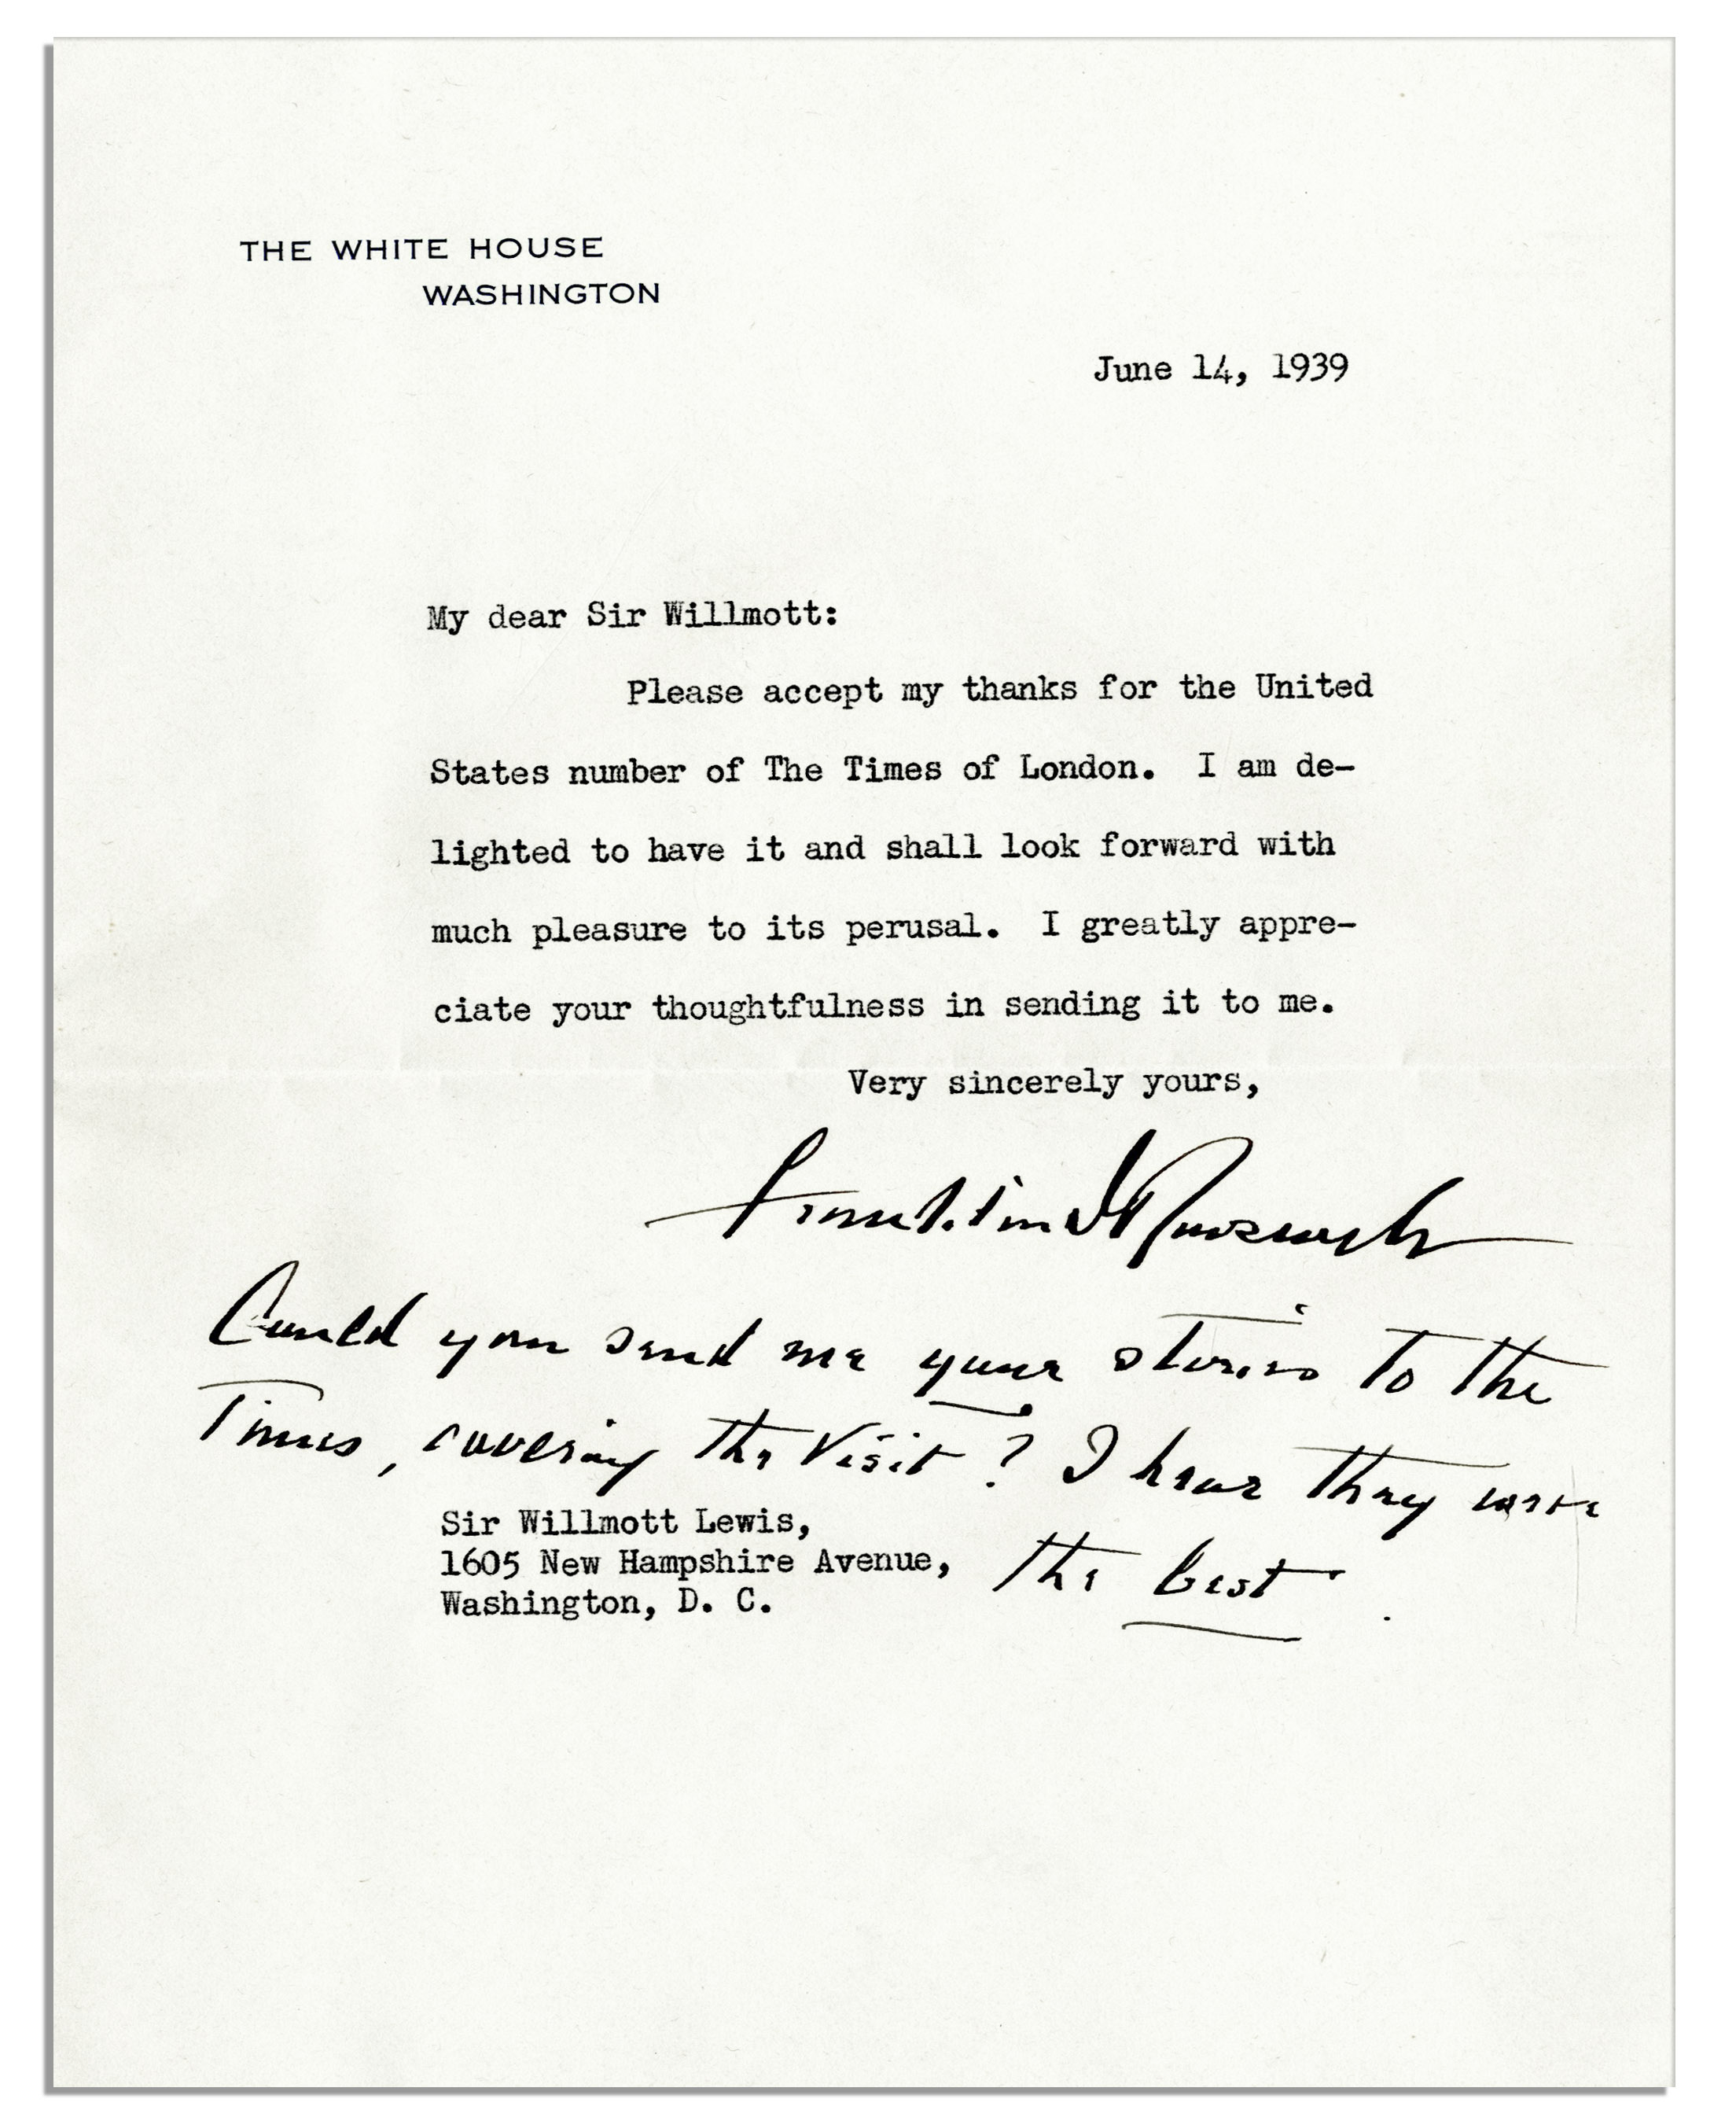 THE WHITE HOUSE
WASHINGTON
June 14, 1939
My dear Sir Willmott:
Please accept my thanks for the United
States number of The Times of London. I am de-
lighted to have it and shall look forward with
much pleasure to its perusal. I greatly appre-
ciate your thoughtfulness in sending it to me.
Very sincerely yours,
Franklin D Roosevelt
Could you send me your stories to the
Times, covering the Visit? I hear they were
the best.
Sir Willmott Lewis,
1605 New Hampshire Avenue,
Washington, D. C.